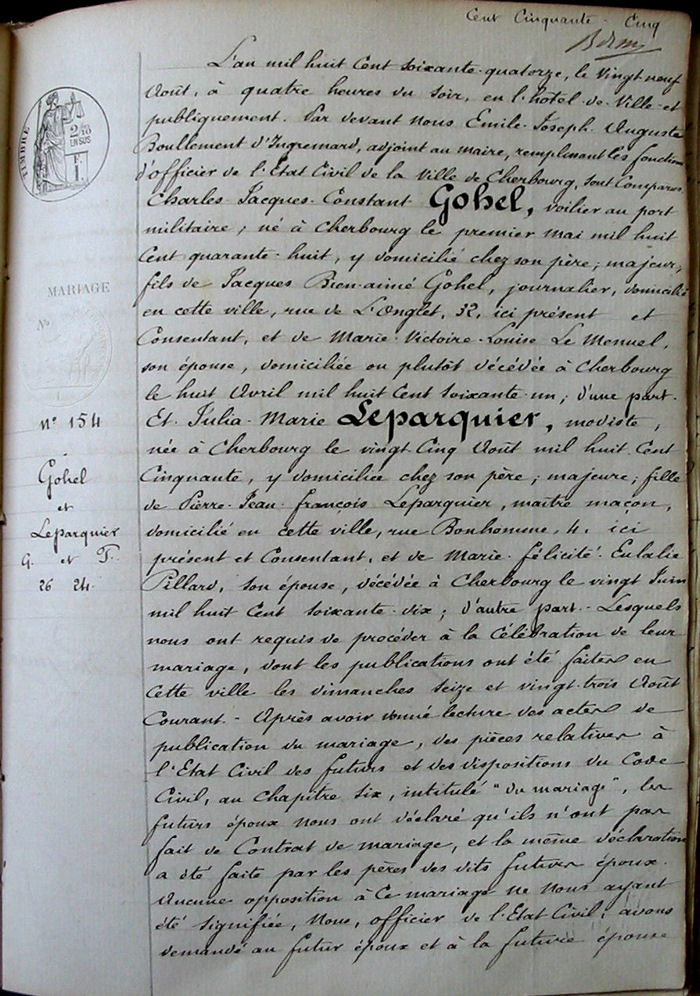 Cent Cinquante - Cinq
L'an mil huit Cent soixante-quatorze, le Vingt neuf
Août, à quatre heures du soir, en l'hôtel-de-Ville et
publiquement. Par devant Nous Emile-Joseph-Auguste
Boullement d'Ingremard, adjoint au maire, remplissant les fonctions
d'officier de l'Etat Civil de la Ville de Cherbourg, sont Comparus
Charles-Jacques-Constant Gohel, voilier au port
militaire ; né à Cherbourg le premier mai mil huit
Cent quarante-huit, y domicilié chez son père ; majeur ;
fils de Jacques Bien-aimé Gohel, journalier, domicilié
en cette ville, rue de L'Onglet, 32, ici présent et
Consentant, et de Marie-Victoire-Louise Le Mesnuel,
son épouse, domiciliée ou plutôt décédée à Cherbourg
le huit Avril mil huit Cent soixante-un ; d'une part.
Et Julia-Marie Leparquier, modiste,
née à Cherbourg le vingt Cinq Août mil huit Cent
Cinquante, y domiciliée chez son père ; majeure ; fille
de Pierre-Jean-François Leparquier, maître maçon,
domicilié en cette ville, rue Bonhomme, 4, ici
présent et Consentant, et de Marie-Félicité-Eulalie
Pillard, son épouse, décédée à Cherbourg le vingt Juin
mil huit Cent soixante-dix ; d'autre part.- Lesquels
nous ont requis de procéder à la Célébration de leur
mariage, dont les publications ont été faites en
Cette ville les dimanches seize et vingt-trois Août
Courant.- Après avoir donné lecture des actes de
publication du mariage, des pièces relatives à
l'Etat Civil des futurs et des dispositions du Code
Civil, au Chapitre six, intitulé "du mariage", les
futurs époux Nous ont déclaré qu'ils n'ont pas
fait de Contrat de mariage, et la même déclaration
a été faite par les pères des dits futurs époux.
Aucune opposition à Ce mariage ne Nous ayant
été signifiée, Nous, officier de l'Etat Civil, avons
demandé au futur époux et à la future épouse
TIMBRE
2/10
EN SUS
F.
1.
MARIAGE
No
N° 154
Gohel
et
Leparquier
G. et F.
26 24.